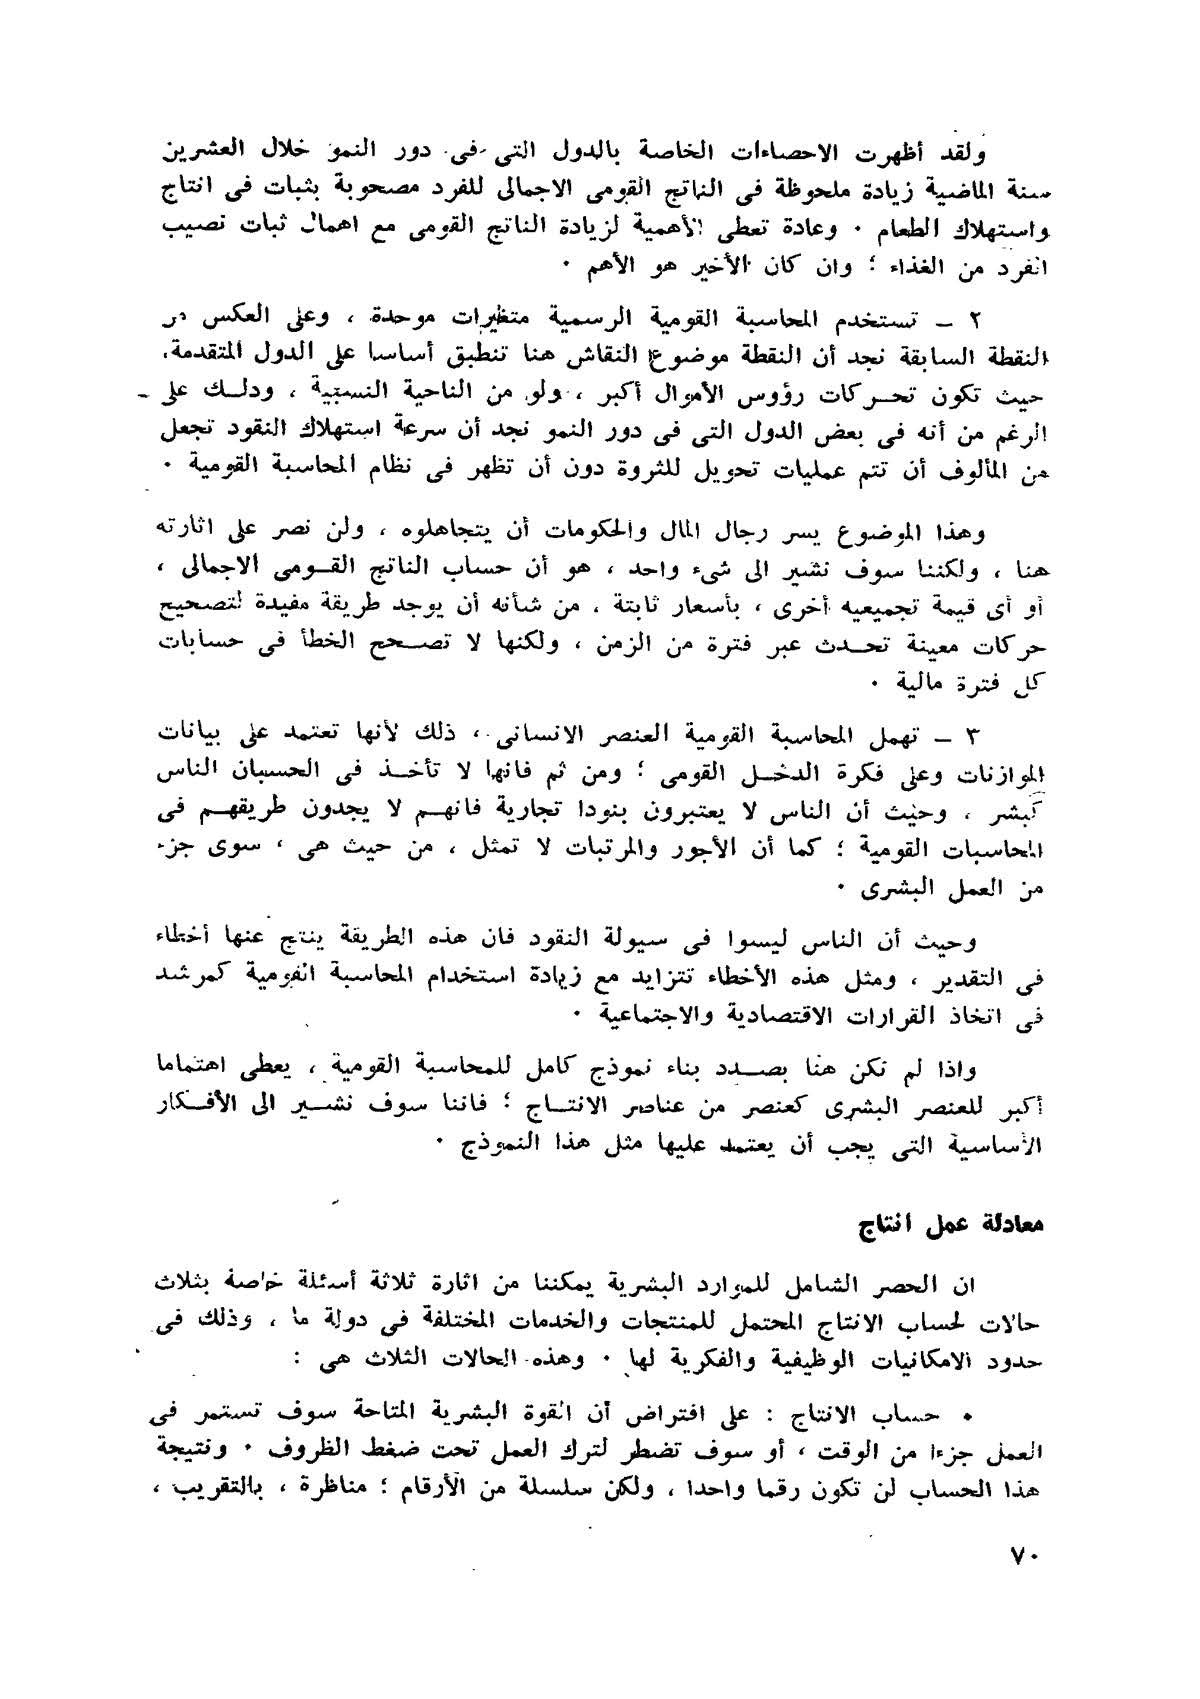 ولقد أظهرت الاحصاءات الخاصة بالدول التى فى دور النمو خلال العشرين
سنة الماضية زيادة ملحوظة فى الناتج القومى الاجمالى للفرد مصحوبة بثبات فى انتاج
واستهلاك الطعام ٠ وعادة تعطى الأهمية لزيادة الناتج القومى مع اهمال ثبات نصيب
الفرد من الغذاء ؛ وان كان الأخير هو الأهم ٠
٢ – تستخدم المحاسبة القومية الرسمية متغيرات موحدة ، وعلى العكس من
النقطة السابقة نجد أن النقطة موضوع النقاش هنا تنطبق أساسا على الدول المتقدمة،
حيث تكون تحركات رؤوس الأموال أكبر ، ولو من الناحية النسبية ، وذلك على
الرغم من أنه فى بعض الدول التى فى دور النمو نجد أن سرعة استهلاك النقود تجعل
من المألوف أن تتم عمليات تحويل للثروة دون أن تظهر فى نظام المحاسبة القومية ٠
وهذا الموضوع يسر رجال المال والحكومات أن يتجاهلوه ، ولن نصر على اثارته
هنا ، ولكننا سوف نشير الى شىء واحد ، هو أن حساب الناتج القومى الاجمالى ،
أو أى قيمة تجميعيه أخرى ، بأسعار ثابتة ، من شأنه أن يوجد طريقة مفيدة لتصحيح
حركات معينة تحدث عبر فترة من الزمن ، ولكنها لا تصحح الخطأ فى حسابات
كل فترة مالية ٠
٣ – تهمل المحاسبة القومية العنصر الانسانى ، ذلك لأنها تعتمد على بيانات
الموازنات وعلى فكرة الدخل القومى ؛ ومن ثم فانها لا تأخذ فى الحسبان الناس
كبشر ، وحيث أن الناس لا يعتبرون بنودا تجارية فانهم لا يجدون طريقهم فى
المحاسبات القومية ؛ كما أن الأجور والمرتبات لا تمثل ، من حيث هى ، سوى جزء
من العمل البشرى ٠
وحيث أن الناس ليسوا فى سيولة النقود فان هذه الطريقة ينتج عنها أخطاء
فى التقدير ، ومثل هذه الأخطاء تتزايد مع زيادة استخدام المحاسبة القومية كمرشد
فى اتخاذ القرارات الاقتصادية والاجتماعية ٠
واذا لم نكن هنا بصدد بناء نموذج كامل للمحاسبة القومية ، يعطى اهتماما
أكبر للعنصر البشرى كعنصر من عناصر الانتاج ؛ فاننا سوف نشير الى الأفكار
الأساسية التى يجب أن يعتمد عليها مثل هذا النموذج ٠
معادلة عمل انتاج
ان الحصر الشامل للموارد البشرية يمكننا من اثارة ثلاثة أسئلة خاصة بثلاث
حالات لحساب الانتاج المحتمل للمنتجات والخدمات المختلفة فى دولة ما ، وذلك فى
حدود الامكانيات الوظيفية والفكرية لها ٠ وهذه الحالات الثلاث هى :
• حساب الانتاج : على افتراض أن القوة البشرية المتاحة سوف تستمر فى
العمل جزءا من الوقت ، أو سوف تضطر لترك العمل تحت ضغط الظروف ٠ ونتيجة
هذا الحساب لن تكون رقما واحدا ، ولكن سلسلة من الأرقام ؛ مناظرة ، بالتقريب ،
٧٠